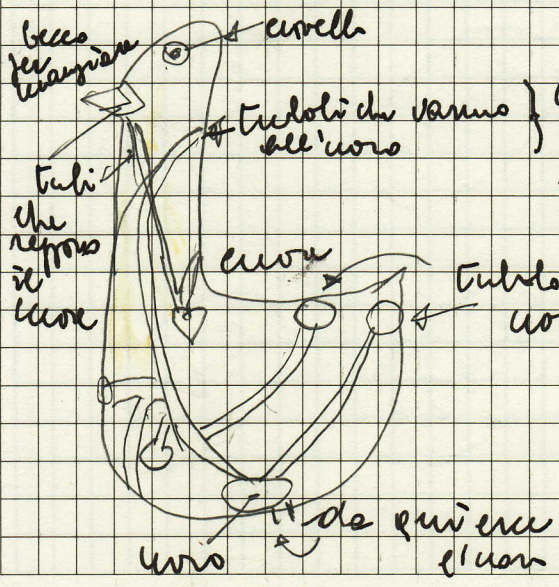 becco
per
mangiare
cervello
tuboli che vanno
all'uovo
tubi
che
reggono
il
cuore
cuore
tubolo
uo
uovo
da qui esce
l'uovo